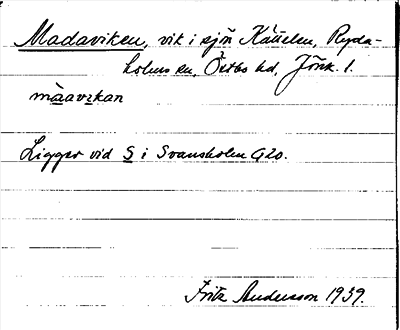 Madaviken, vik i sjön Kättelen, Ryda-
holms sn, Östbo hd, Jönk. l.
màavıkan
Ligger vid S i Svansholen G20.
Fritz Andersson 1939.